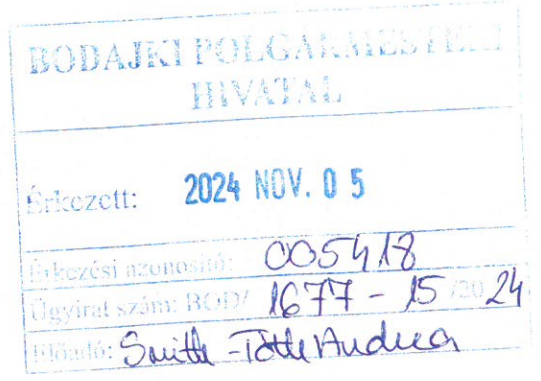 BODAJKI POLGÁRMESTERI
HIVATAL
Érkezett: 2024 NOV. 05
Érkezési azonosító: 005418
Ügyirat szám: BOD/ 1677 - 15 /20 24
Előadó: Smith-Tóth Andrea